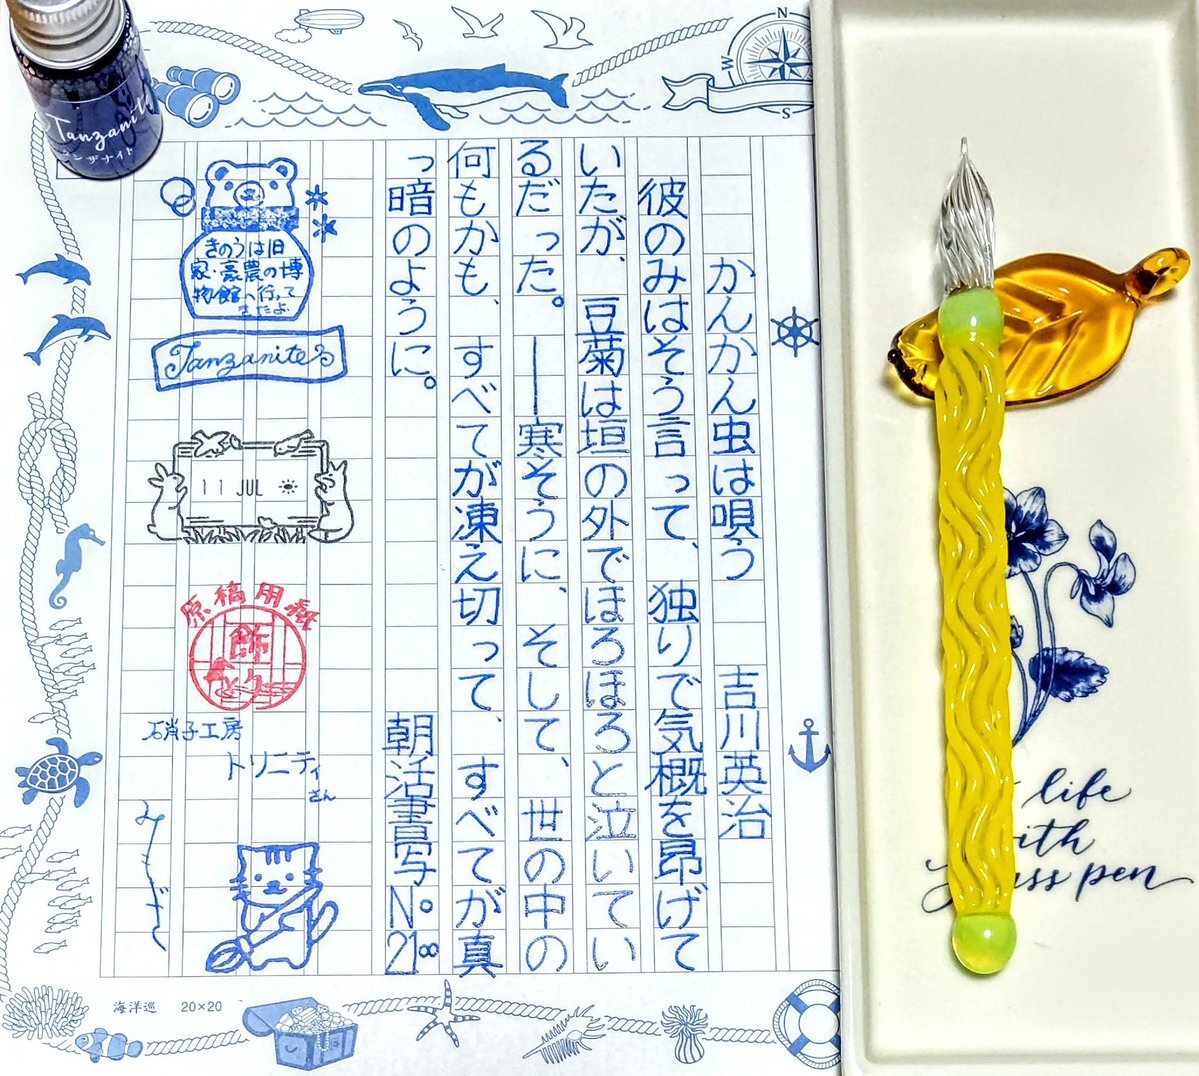 かんかん虫は唄う 吉川英治
彼のみはそう言って、独りで気概を昂げて
いたが、豆菊は垣の外でほろほろと泣いてい
るだった。――寒そうに、そして、世の中の
何もかも、すべてが凍え切って、すべてが真
っ暗のように。
朝活書写No 2100
きのうは旧
家・豪農の博
物館へ行って
きたよ
Tanzanite
11 JUL
原稿用紙
硝子工房
トリニティ
さん
海洋巡 20×20
Tanzanit
ンザナイト
N
W
S
life
ith
ss pen